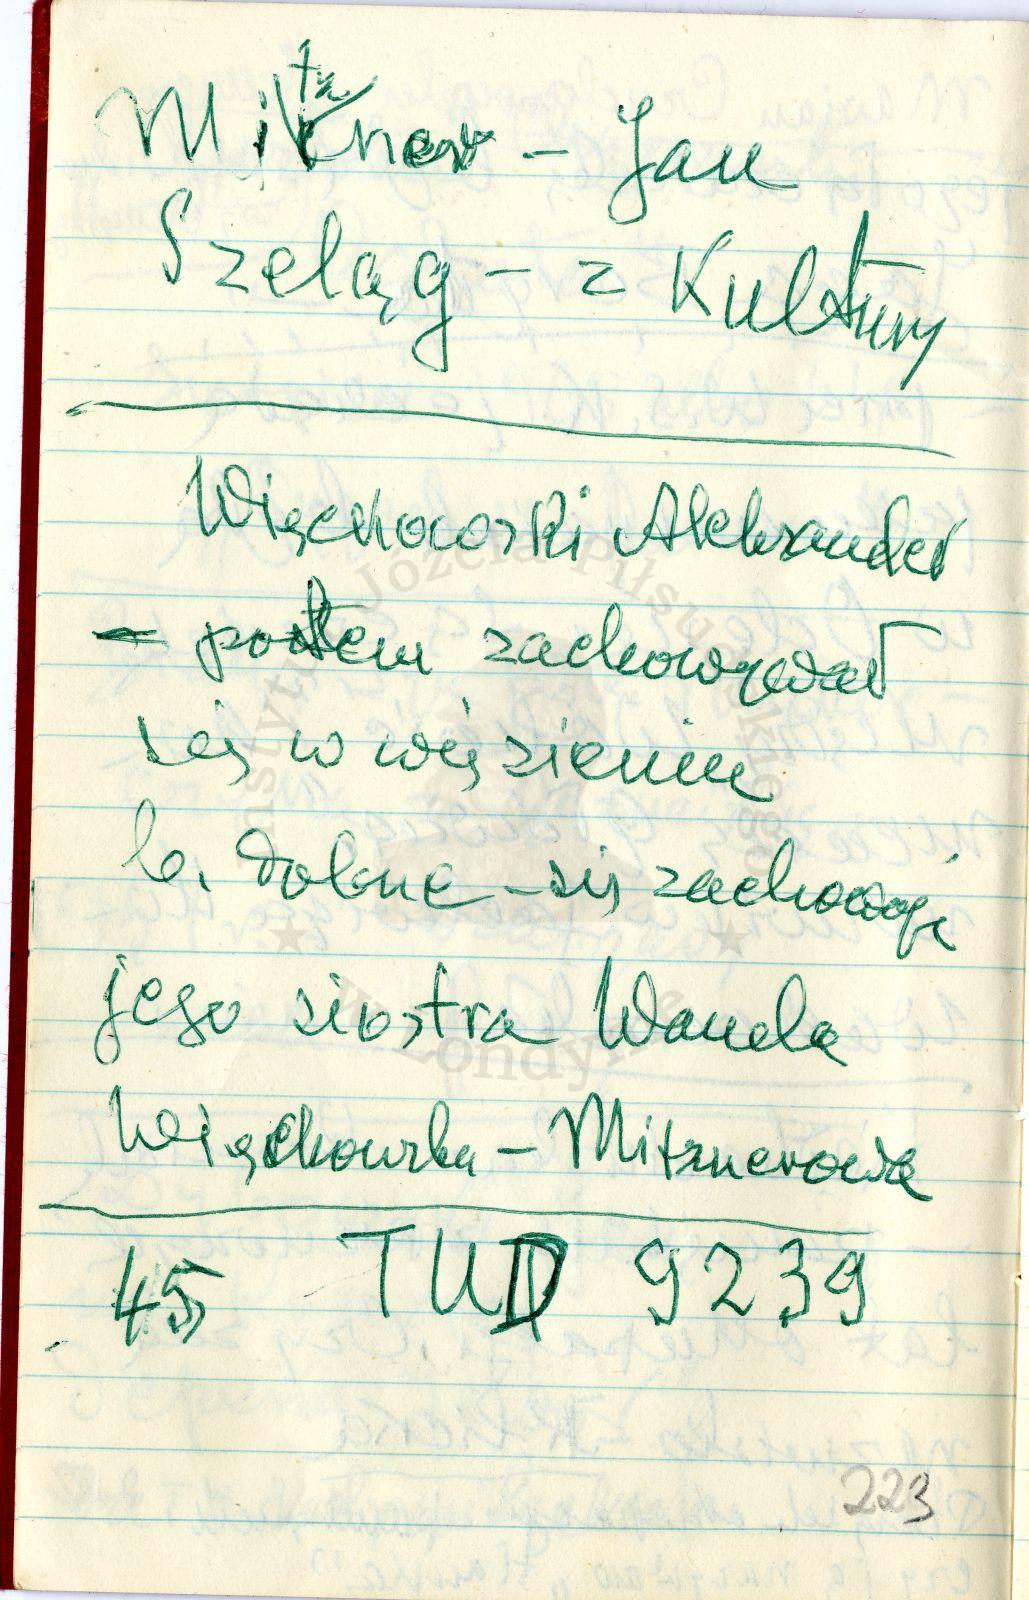 Mitzner – Jan
Szeląg – z Kultury
Więckowski Aleksander
– potem zachowywał
się w więzieniu
b. dobrze – się zachowuje
jego siostra Wanda
Więckowska – Mitznerowa
45 TUD 9239
223
Instytut Józefa Piłsudskiego
w Londynie